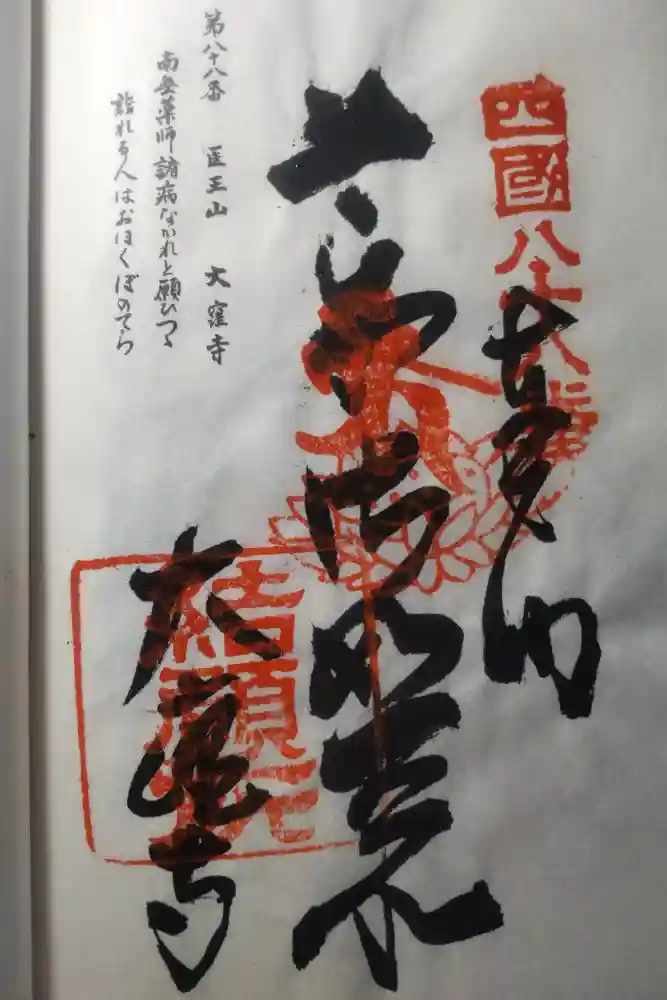 四國八十八番
奉納
大窪寺
結願所
第八十八番 医王山 大窪寺
南無薬師諸病なかれと願ひつゝ
詣れる人はおほくぼのてら